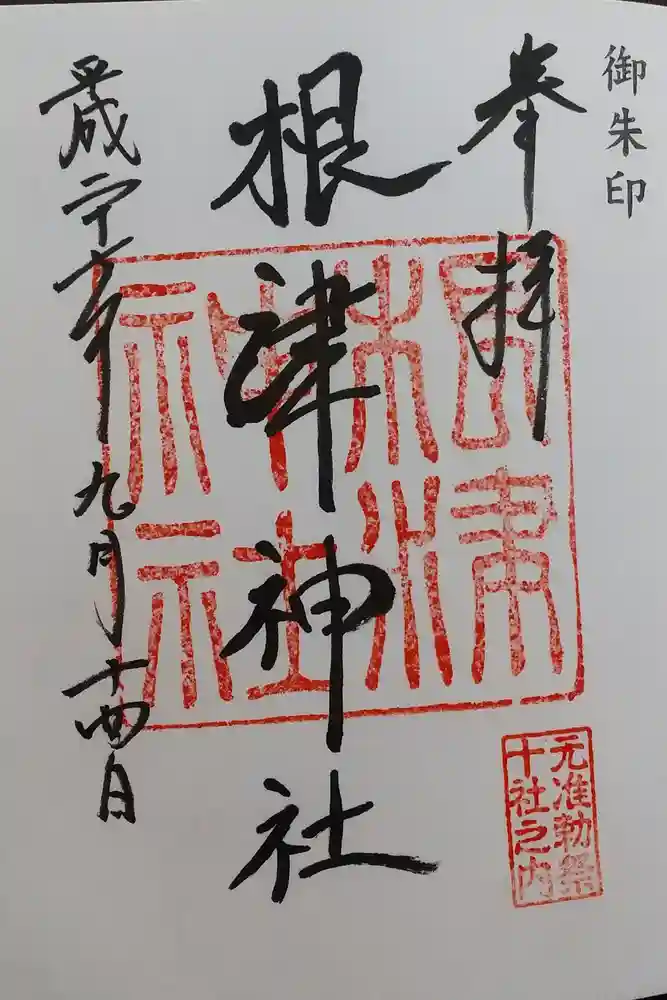 御朱印
奉拝
根津神社
九月十四日
根津
神社
元准勅祭
十社之内